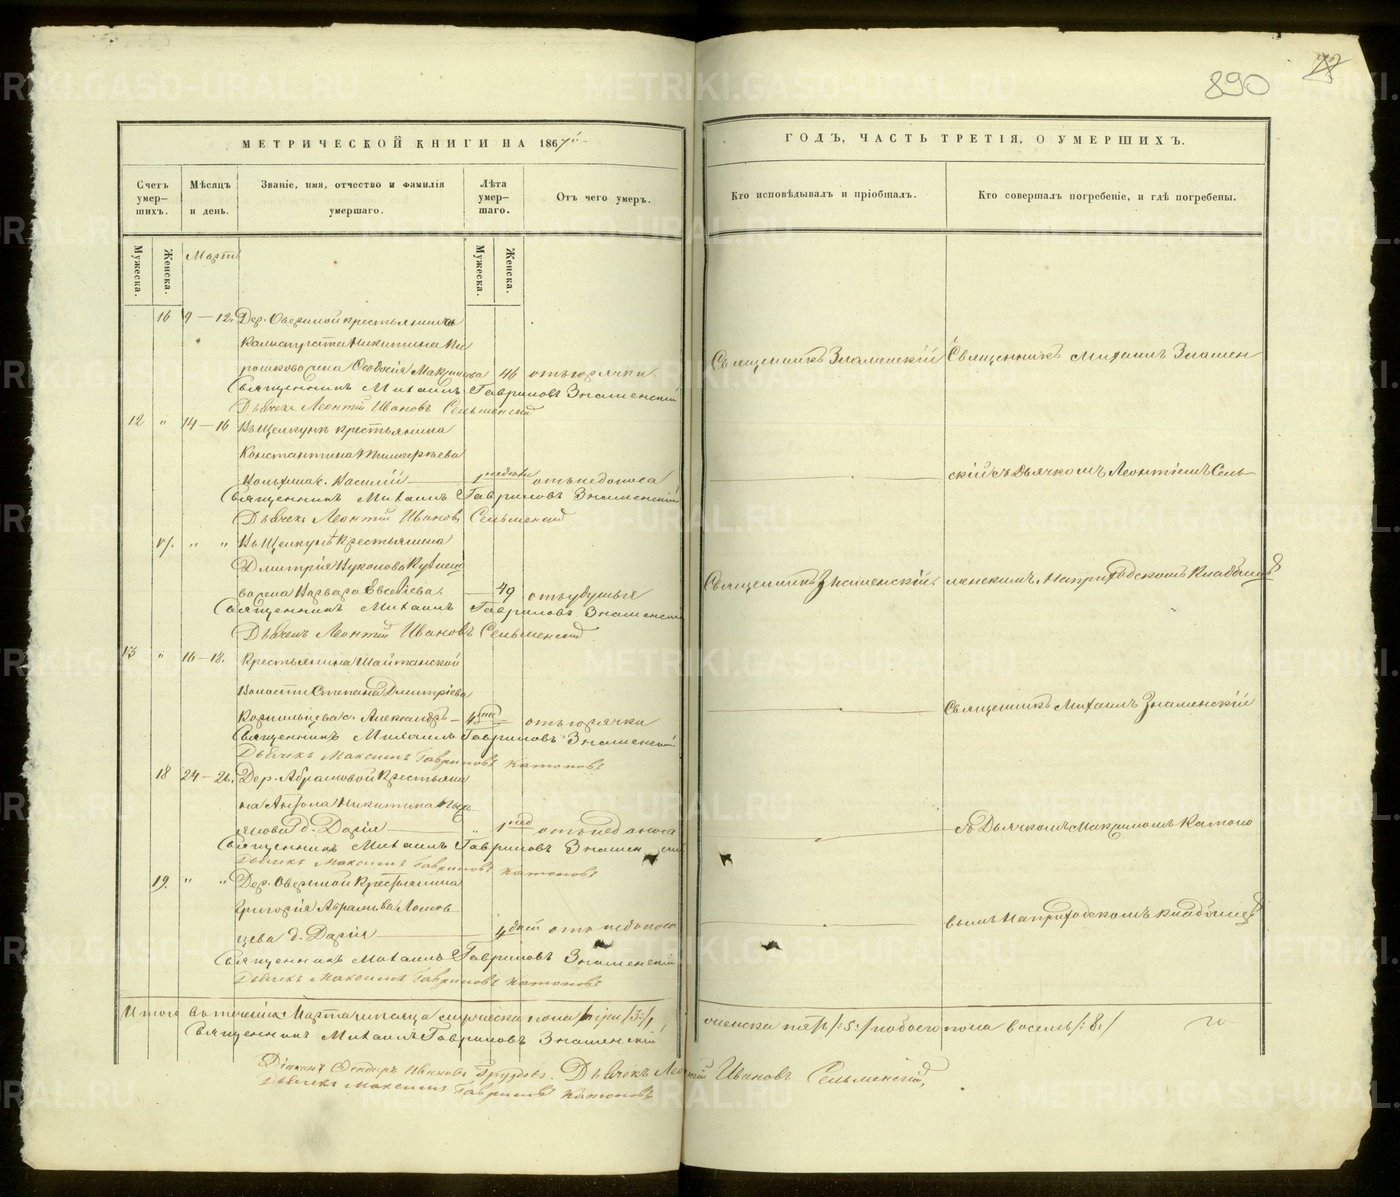 890
МЕТРИЧЕСКОЙ КНИГИ НА 1867й
ГОДЪ, ЧАСТЬ ТРЕТІЯ, О УМЕРШИХЪ.
Счетъ умер-
шихъ.
Мѣсяцъ
и день.
Званіе, имя, отчество и фамилія
умершаго.
Лѣта
умер-
шаго.
Отъ чего умеръ.
Кто исповѣдывалъ и пріобщалъ.
Кто совершалъ погребеніе, и гдѣ погребены.
Мужеска.
Женска.
Мартъ
Мужеска.
Женска.
16 9 — 12. Дер. Овериной крестьянина
Калистрата Никитина
Ѳеодосія Макарова 46 отъ горячки
Священникъ Знаменскій
Священникъ Михаилъ Знамен
Священникъ Михаилъ Гавриловъ Знаменскій
Дьячекъ Леонтій Ивановъ Сельменскій
12 " 14 — 16 Въ Щелкунѣ крестьянина
Константина
с. Василій 1 недѣли отъ недоноса
скій съ Дьячкомъ Леонтіемъ Сель-
Священникъ Михаилъ Гавриловъ Знаменскій
Дьячекъ Леонтій Ивановъ Сельменскій
17. " " Въ Щелкунѣ Крестьянина
Дмитрія
Варвара Евсеѣева. 49 отъ удушья
Священникъ Знаменскій.
менскимъ. На приходскомъ кладбищѣ
Священникъ Михаилъ Гавриловъ Знаменскій
Дьячекъ Леонтій Ивановъ Сельменскій
13 " 16 — 18. Крестьянина Шайтанской
Волости Степана Дмитріева
Кориильцева с. Александръ — 4 дни отъ горячки
Священникъ Михаилъ Знаменскій
Священникъ Михаилъ Гавриловъ Знаменскій
Дьячекъ Максимъ Гавриловъ Катоновъ
18 24 — 26. Дер. Абрамовой Крестьяни
на Никитина
д. Дарія " 1 нед отъ недоноса
съ Дьячкомъ Максимомъ Катоно
Священникъ Михаилъ Гавриловъ Знаменскій
Дьячекъ Максимъ Гавриловъ Катоновъ
19. " " Дер. Овериной Крестьянина
Григорія Абрамова
цева д. Дарія 4 дней отъ недоноса
вымъ На приходскомъ кладбищѣ
Священникъ Михаилъ Гавриловъ Знаменскій
Дьячекъ Максимъ Гавриловъ Катоновъ
Итого въ теченіи Марта мѣсяца мужеска пола три /:3:/,
женска пять /:5:/ обоего пола восемь /:8:/
Священникъ Михаилъ Гавриловъ Знаменскій
Діаконъ Ѳеодоръ Ивановъ Груздевъ. Дьячекъ Леонтій Ивановъ Сельменскій,
Дьячекъ Максимъ Гавриловъ Катоновъ
METRIKI.GASO-URAL.RU